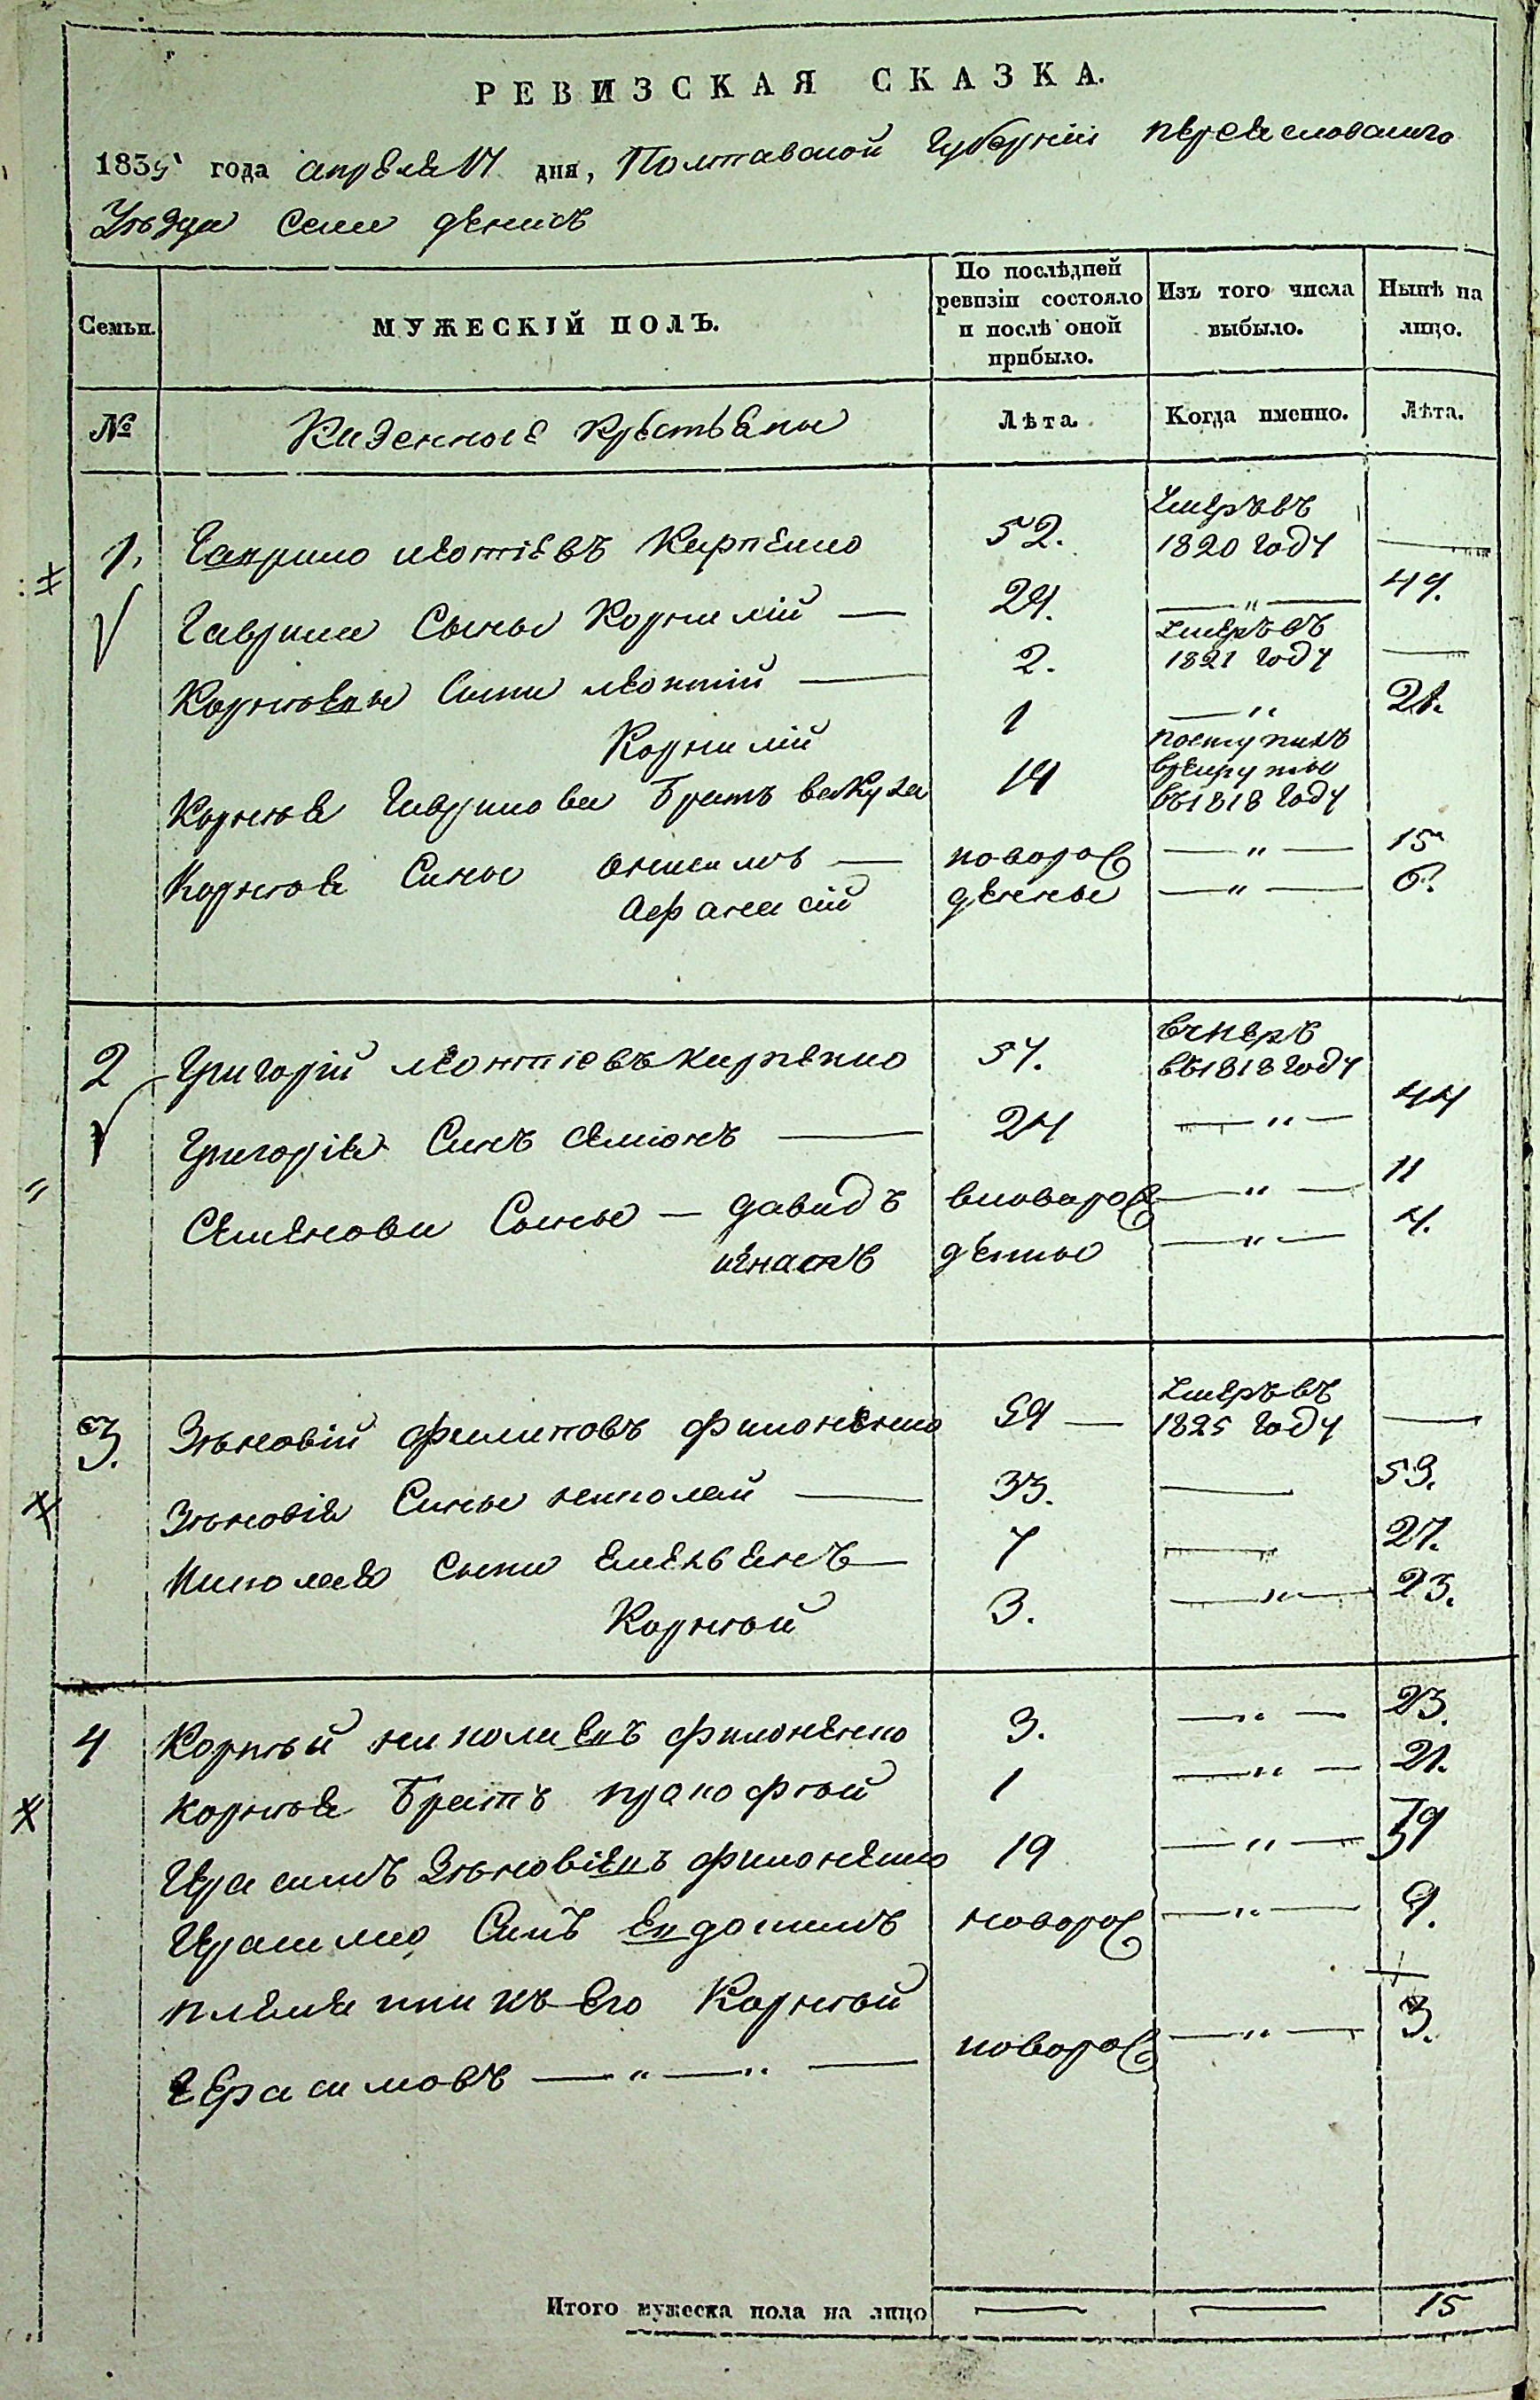 РЕВИЗСКАЯ СКАЗКА.
1835 года апреля 17 дня, Полтавской Губернии переясловского
Уѣзда села денисъ
Семьи.
МУЖЕСКІЙ ПОЛЪ.
По послѣдней ревизіи состояло и послѣ оной прибыло.
Изъ того числа выбыло.
Нынѣ на лицо.
№
Казенные крестьяны
Лѣта.
Когда именно.
Лѣта.
1. Гаврило леонтіевъ Карпенко 52. Умеръ въ 1820 году —
Гаврила Сыны Корнилій — 29. — " — 49.
Корнѣевы Сыни леонтій — 2. Умеръ въ 1821 году —
Корнилій 1 — " 21.
Корнѣя Гаврилова братъ вакула 14 поступилъ врекруты въ 1818 году
Корнѣя Сины онисимъ — новорож — " — 15
Афанасій денны — " — 6.
2 Григорій леонтіевъ карпенко 54. вмеръ въ 1818 году
Григорія Синъ семіонъ — 24 — " — 44
Семенова Сыны — давидъ вноворож — " — 11
игнатъ денны — " — 4.
3. Зѣновій филиповъ филоненко 59 — Умеръ въ 1825 году —
Зѣновія Сины николай — 33. — 53.
Николая сыни Емельянъ — 7 — 27.
Корнѣй 3. — " — 23.
4 Корнѣй николаевъ филоненко 3. — " — 23.
корнѣя братъ прокофѣй 1 — " — 21.
Герасимъ Зѣновіевъ филоненко 19 — " — 39
Герасима Синъ Евдокимъ новорож — " — 9.
племянникъ его Корнѣй
Герасимовъ — " — " — новорож — " — 3.
Итого мужеска пола на лицо — — 15